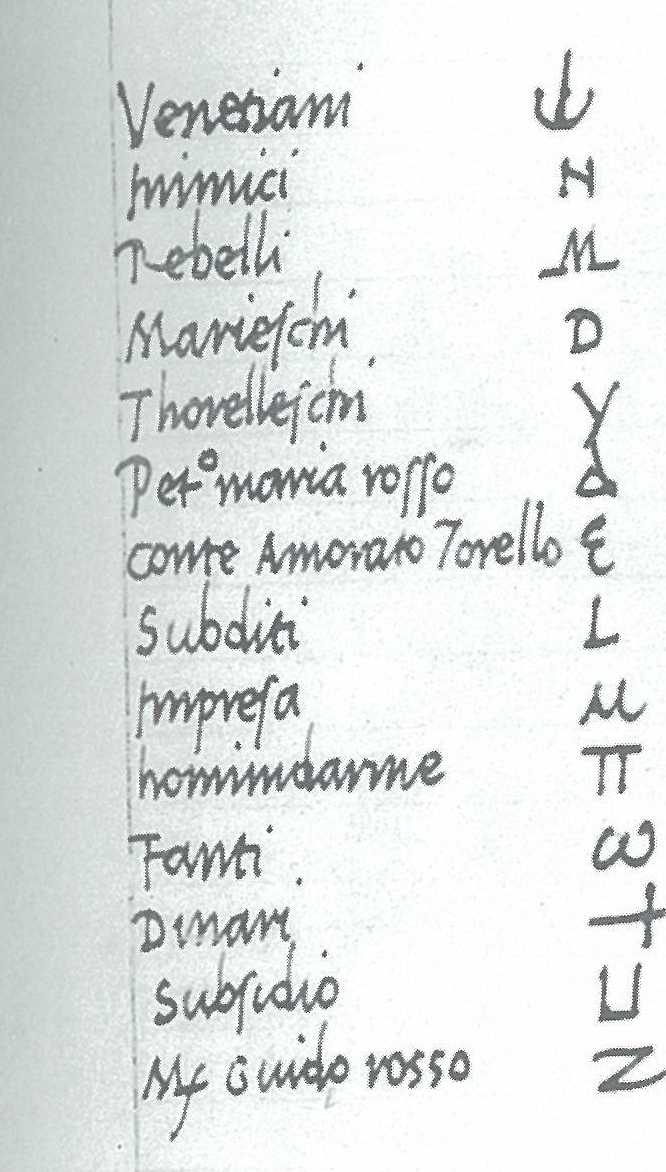 Veneziani ⫝
Inimici H
Rebelli M
Marieschi D
Thorelleschi Y
Petº maria rosso
conte Amorato Torello Ɛ
Subditi L
Impresa μ
hominidarme π
Fanti ω
Dinari
Subsidio ⊔
Mſ Guido rosso N